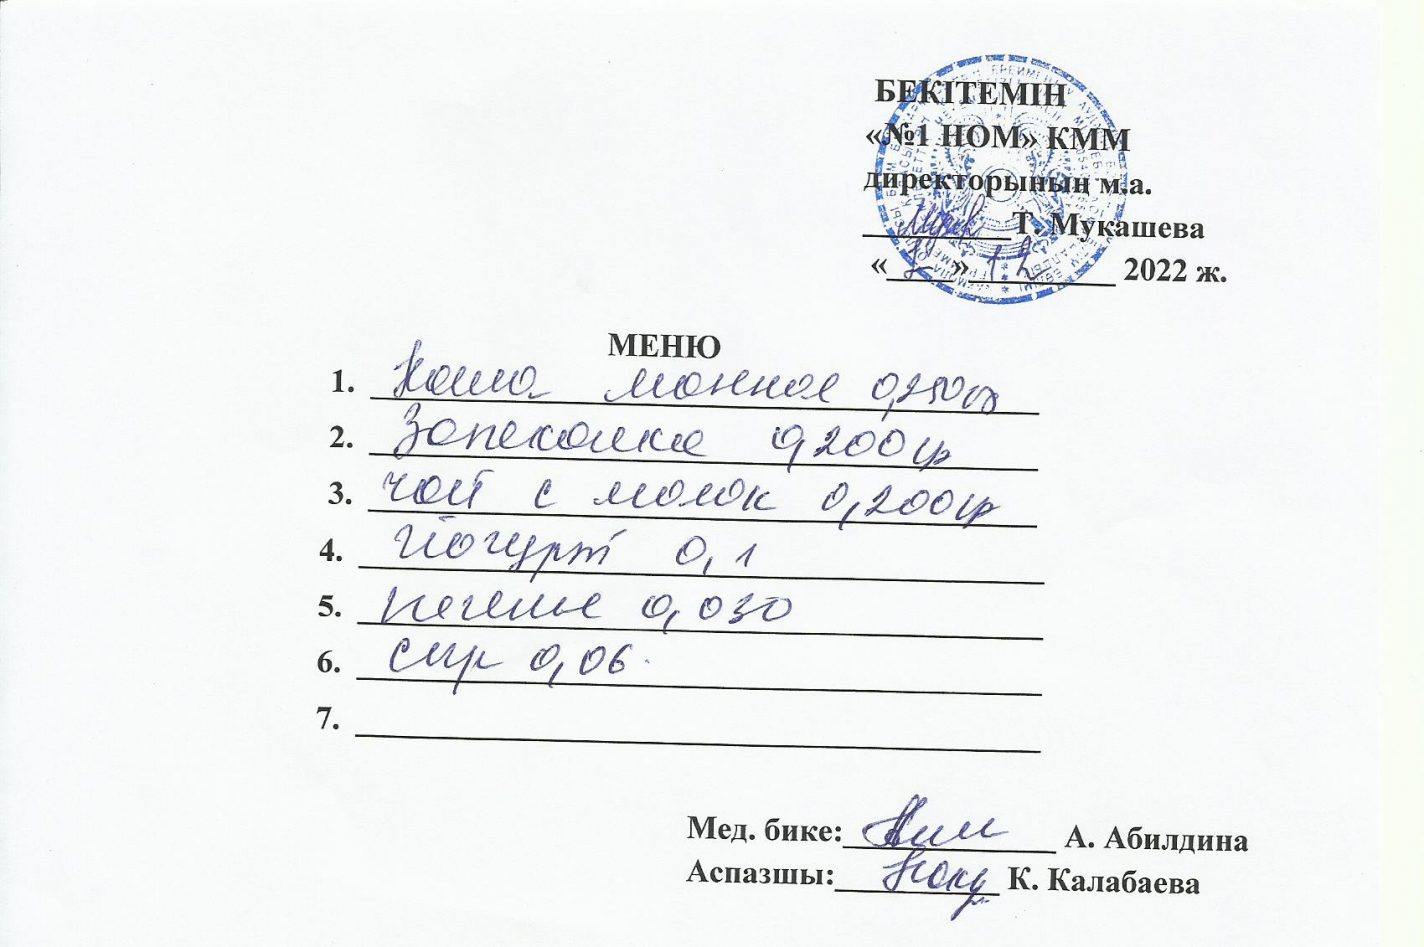 БЕКІТЕМІН
«№1 НОМ» КММ
директорының м.а.
Т. Мукашева
« » 12 2022 ж.
МЕНЮ
1. Каша манная 0,250гр
2. Запеканка 0,200гр
3. чай с молок 0,200гр
4. Йогурт 0,1
5. печенье 0,030
6. сыр 0,06.
7.
Мед. бике: А. Абилдина
Аспазшы: К. Калабаева